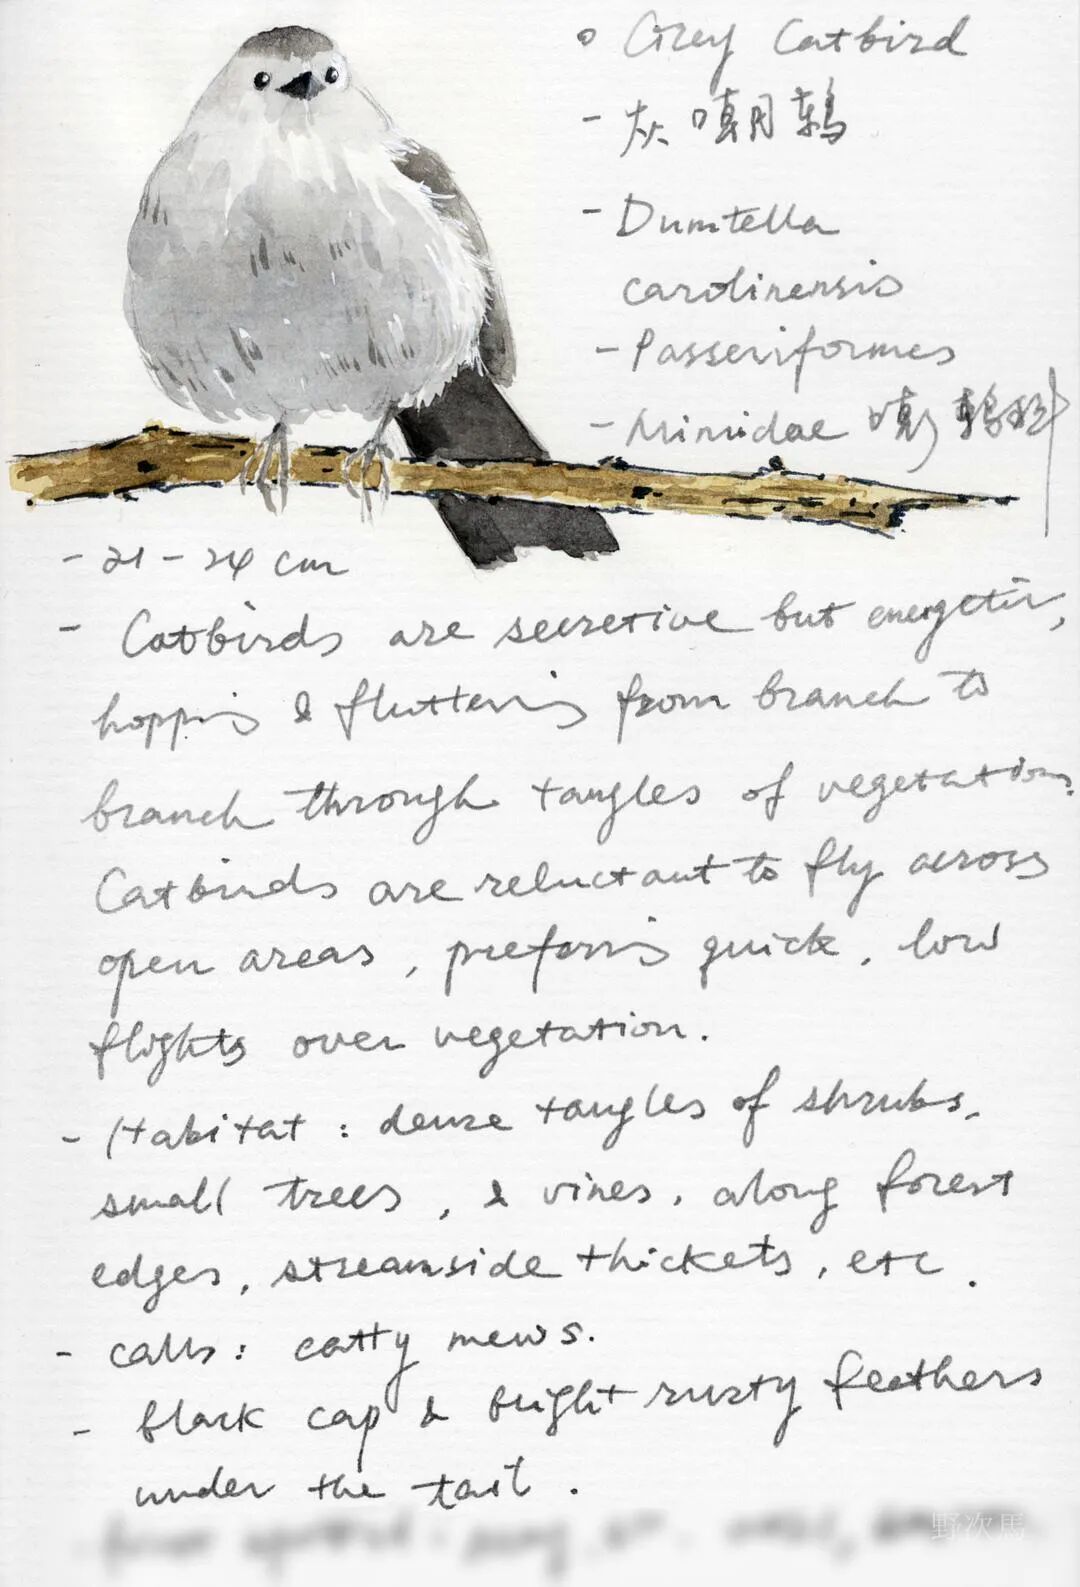 Grey Catbird
- 灰嘲鸫
- Dumtella
carolinensis
- Passeriformes
- Mimidae 嘲鸫科
- 21-24 cm
- Catbirds are secretive but energetic,
hopping & fluttering from branch to
branch through tangles of vegetation.
Catbirds are reluctant to fly across
open areas, preferring quick, low
flights over vegetation.
- Habitat: dense tangles of shrubs,
small trees, & vines, along forest
edges, streamside thickets, etc.
- calls: catty mews.
- black cap & bright rusty feathers
under the tail.
野次馬